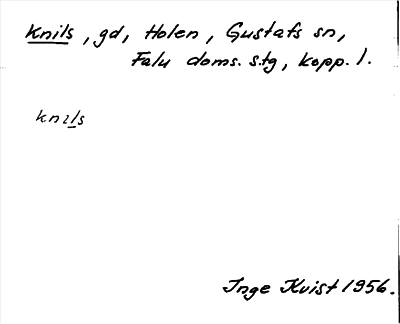 Knils, gd, Holen, Gustafs sn,
Falu doms. stg, kopp. l.
knɪls
Inge Kvist 1956.